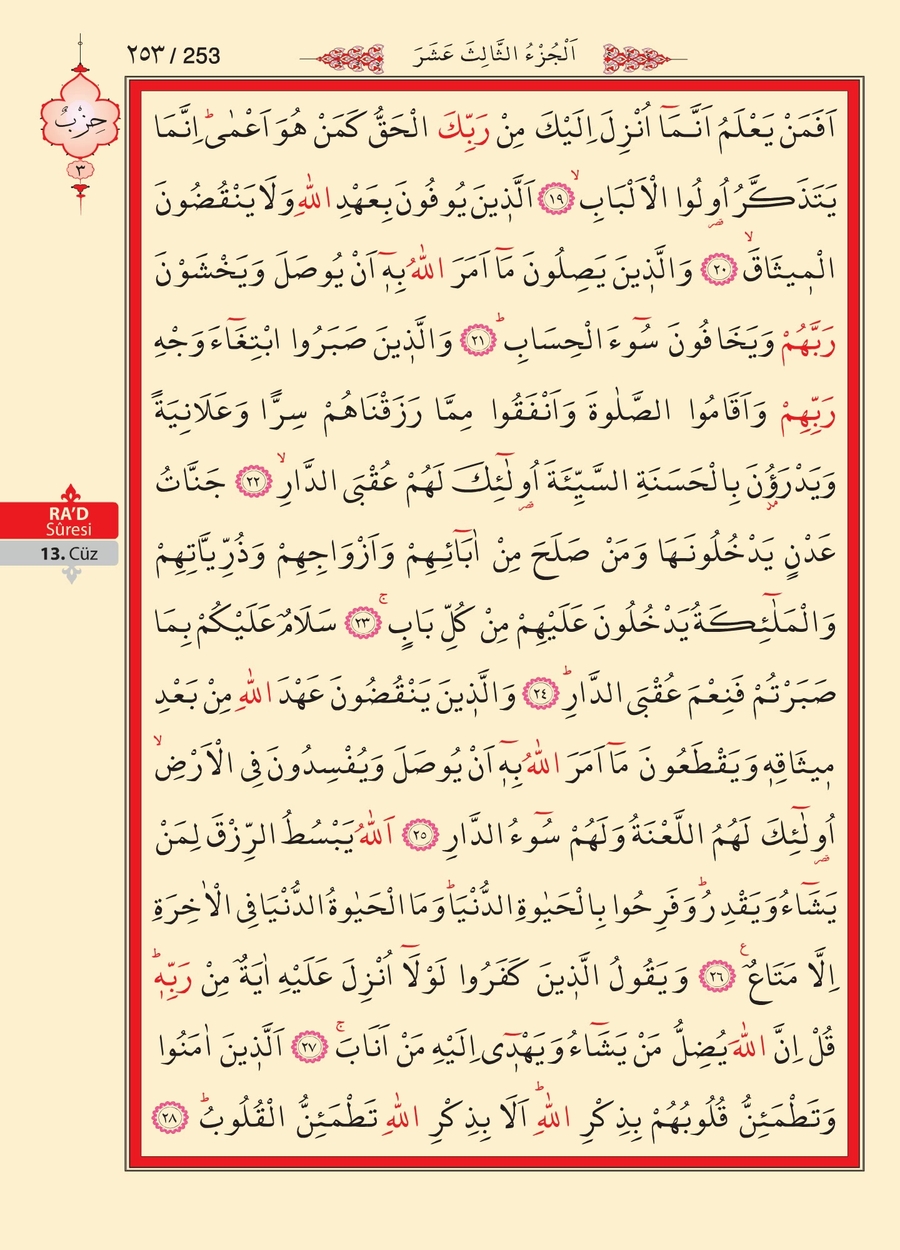 ٢٥٣ / 253
اَلْجُزْءُ الثَّالِثَ عَشَرَ
حِزْبٌ
٣
اَفَمَنْ يَعْلَمُ اَنَّمَٓا اُنْزِلَ اِلَيْكَ مِنْ رَبِّكَ الْحَقُّ كَمَنْ هُوَ اَعْمٰىۜ اِنَّمَا
يَتَذَكَّرُ اُو۬لُوا الْاَلْبَابِۙ ﴿١٩﴾ اَلَّذ۪ينَ يُوفُونَ بِعَهْدِ اللّٰهِ وَلَا يَنْقُضُونَ
الْم۪يثَاقَۙ ﴿٢٠﴾ وَالَّذ۪ينَ يَصِلُونَ مَٓا اَمَرَ اللّٰهُ بِه۪ٓ اَنْ يُوصَلَ وَيَخْشَوْنَ
رَبَّهُمْ وَيَخَافُونَ سُٓوءَ الْحِسَابِۜ ﴿٢١﴾ وَالَّذ۪ينَ صَبَرُوا ابْتِغَٓاءَ وَجْهِ
رَبِّهِمْ وَاَقَامُوا الصَّلٰوةَ وَاَنْفَقُوا مِمَّا رَزَقْنَاهُمْ سِرًّا وَعَلَانِيَةً
وَيَدْرَؤُ۫نَ بِالْحَسَنَةِ السَّيِّئَةَ اُو۬لٰٓئِكَ لَهُمْ عُقْبَى الدَّارِۙ ﴿٢٢﴾ جَنَّاتُ
عَدْنٍ يَدْخُلُونَهَا وَمَنْ صَلَحَ مِنْ اٰبَٓائِهِمْ وَاَزْوَاجِهِمْ وَذُرِّيَّاتِهِمْ
وَالْمَلٰٓئِكَةُ يَدْخُلُونَ عَلَيْهِمْ مِنْ كُلِّ بَابٍۚ ﴿٢٣﴾ سَلَامٌ عَلَيْكُمْ بِمَا
صَبَرْتُمْ فَنِعْمَ عُقْبَى الدَّارِۜ ﴿٢٤﴾ وَالَّذ۪ينَ يَنْقُضُونَ عَهْدَ اللّٰهِ مِنْ بَعْدِ
م۪يثَاقِه۪ وَيَقْطَعُونَ مَٓا اَمَرَ اللّٰهُ بِه۪ٓ اَنْ يُوصَلَ وَيُفْسِدُونَ فِي الْاَرْضِۙ
اُو۬لٰٓئِكَ لَهُمُ اللَّعْنَةُ وَلَهُمْ سُٓوءُ الدَّارِ ﴿٢٥﴾ اَللّٰهُ يَبْسُطُ الرِّزْقَ لِمَنْ
يَشَٓاءُ وَيَقْدِرُۜ وَفَرِحُوا بِالْحَيٰوةِ الدُّنْيَاۜ وَمَا الْحَيٰوةُ الدُّنْيَا فِي الْاٰخِرَةِ
اِلَّا مَتَاعٌ۟ ﴿٢٦﴾ وَيَقُولُ الَّذ۪ينَ كَفَرُوا لَوْلَٓا اُنْزِلَ عَلَيْهِ اٰيَةٌ مِنْ رَبِّه۪ۜ
قُلْ اِنَّ اللّٰهَ يُضِلُّ مَنْ يَشَٓاءُ وَيَهْد۪ٓي اِلَيْهِ مَنْ اَنَابَۚ ﴿٢٧﴾ اَلَّذ۪ينَ اٰمَنُوا
وَتَطْمَئِنُّ قُلُوبُهُمْ بِذِكْرِ اللّٰهِۜ اَلَا بِذِكْرِ اللّٰهِ تَطْمَئِنُّ الْقُلُوبُۜ ﴿٢٨﴾
RA'D
Sûresi
13. Cüz